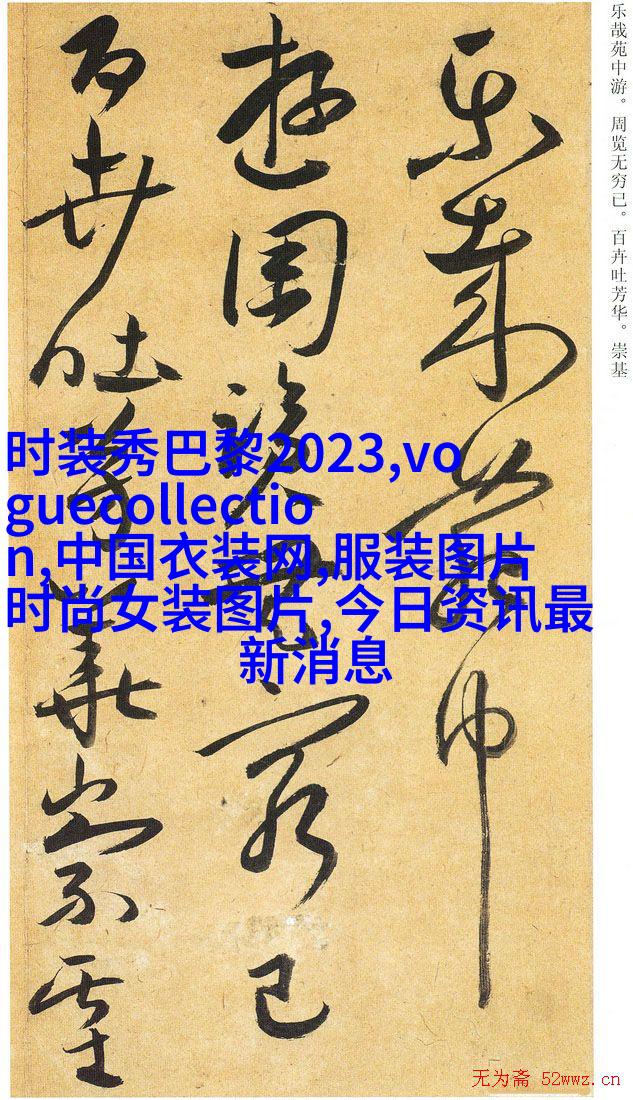 乐哉苑中游。周览无穷已。百卉吐芳华。崇基
乐哉苑中
游周览无穷已
百卉吐芳华崇基
时装秀巴黎2023,vo
guecollectio
n,中国衣装网,服装图片
时尚女装图片,今日资讯最
新消息
无为斋 52wwz.cn